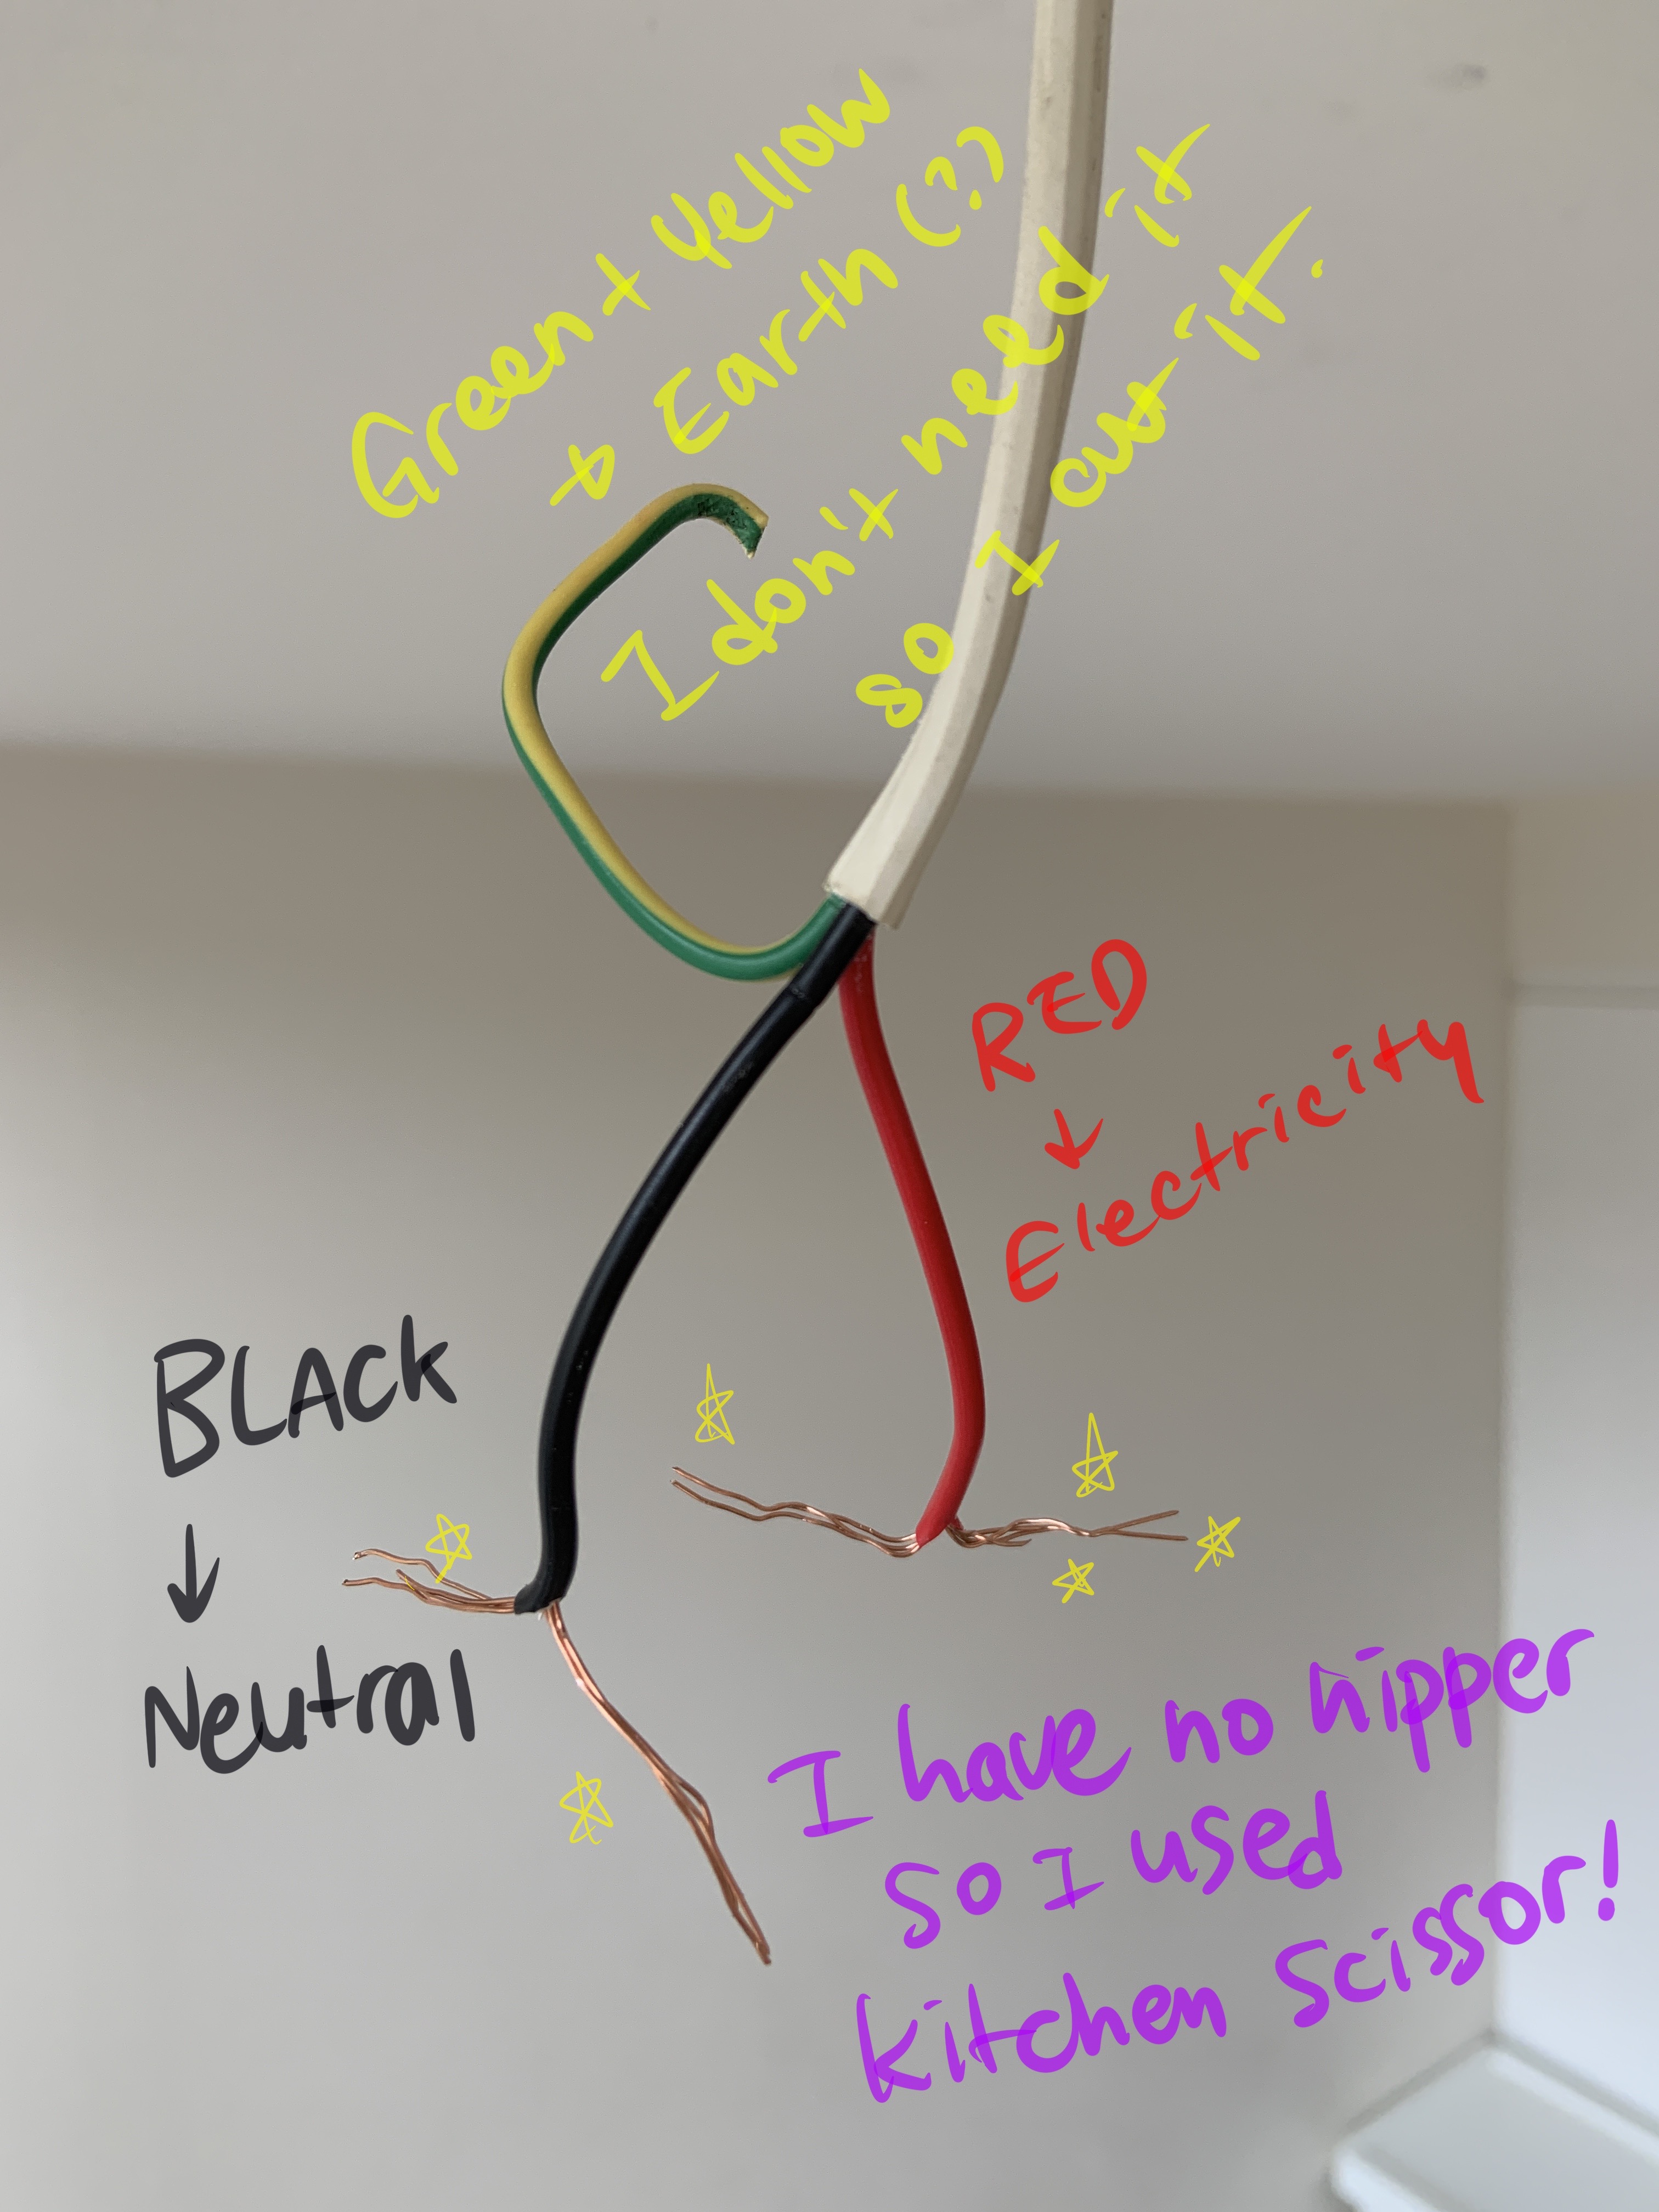 Green + Yellow
→ Earth (?)
I don't need it
so I cut it.
RED
↓
Electricity
BLACK
↓
Neutral
I have no nipper
so I used
kitchen scissor!